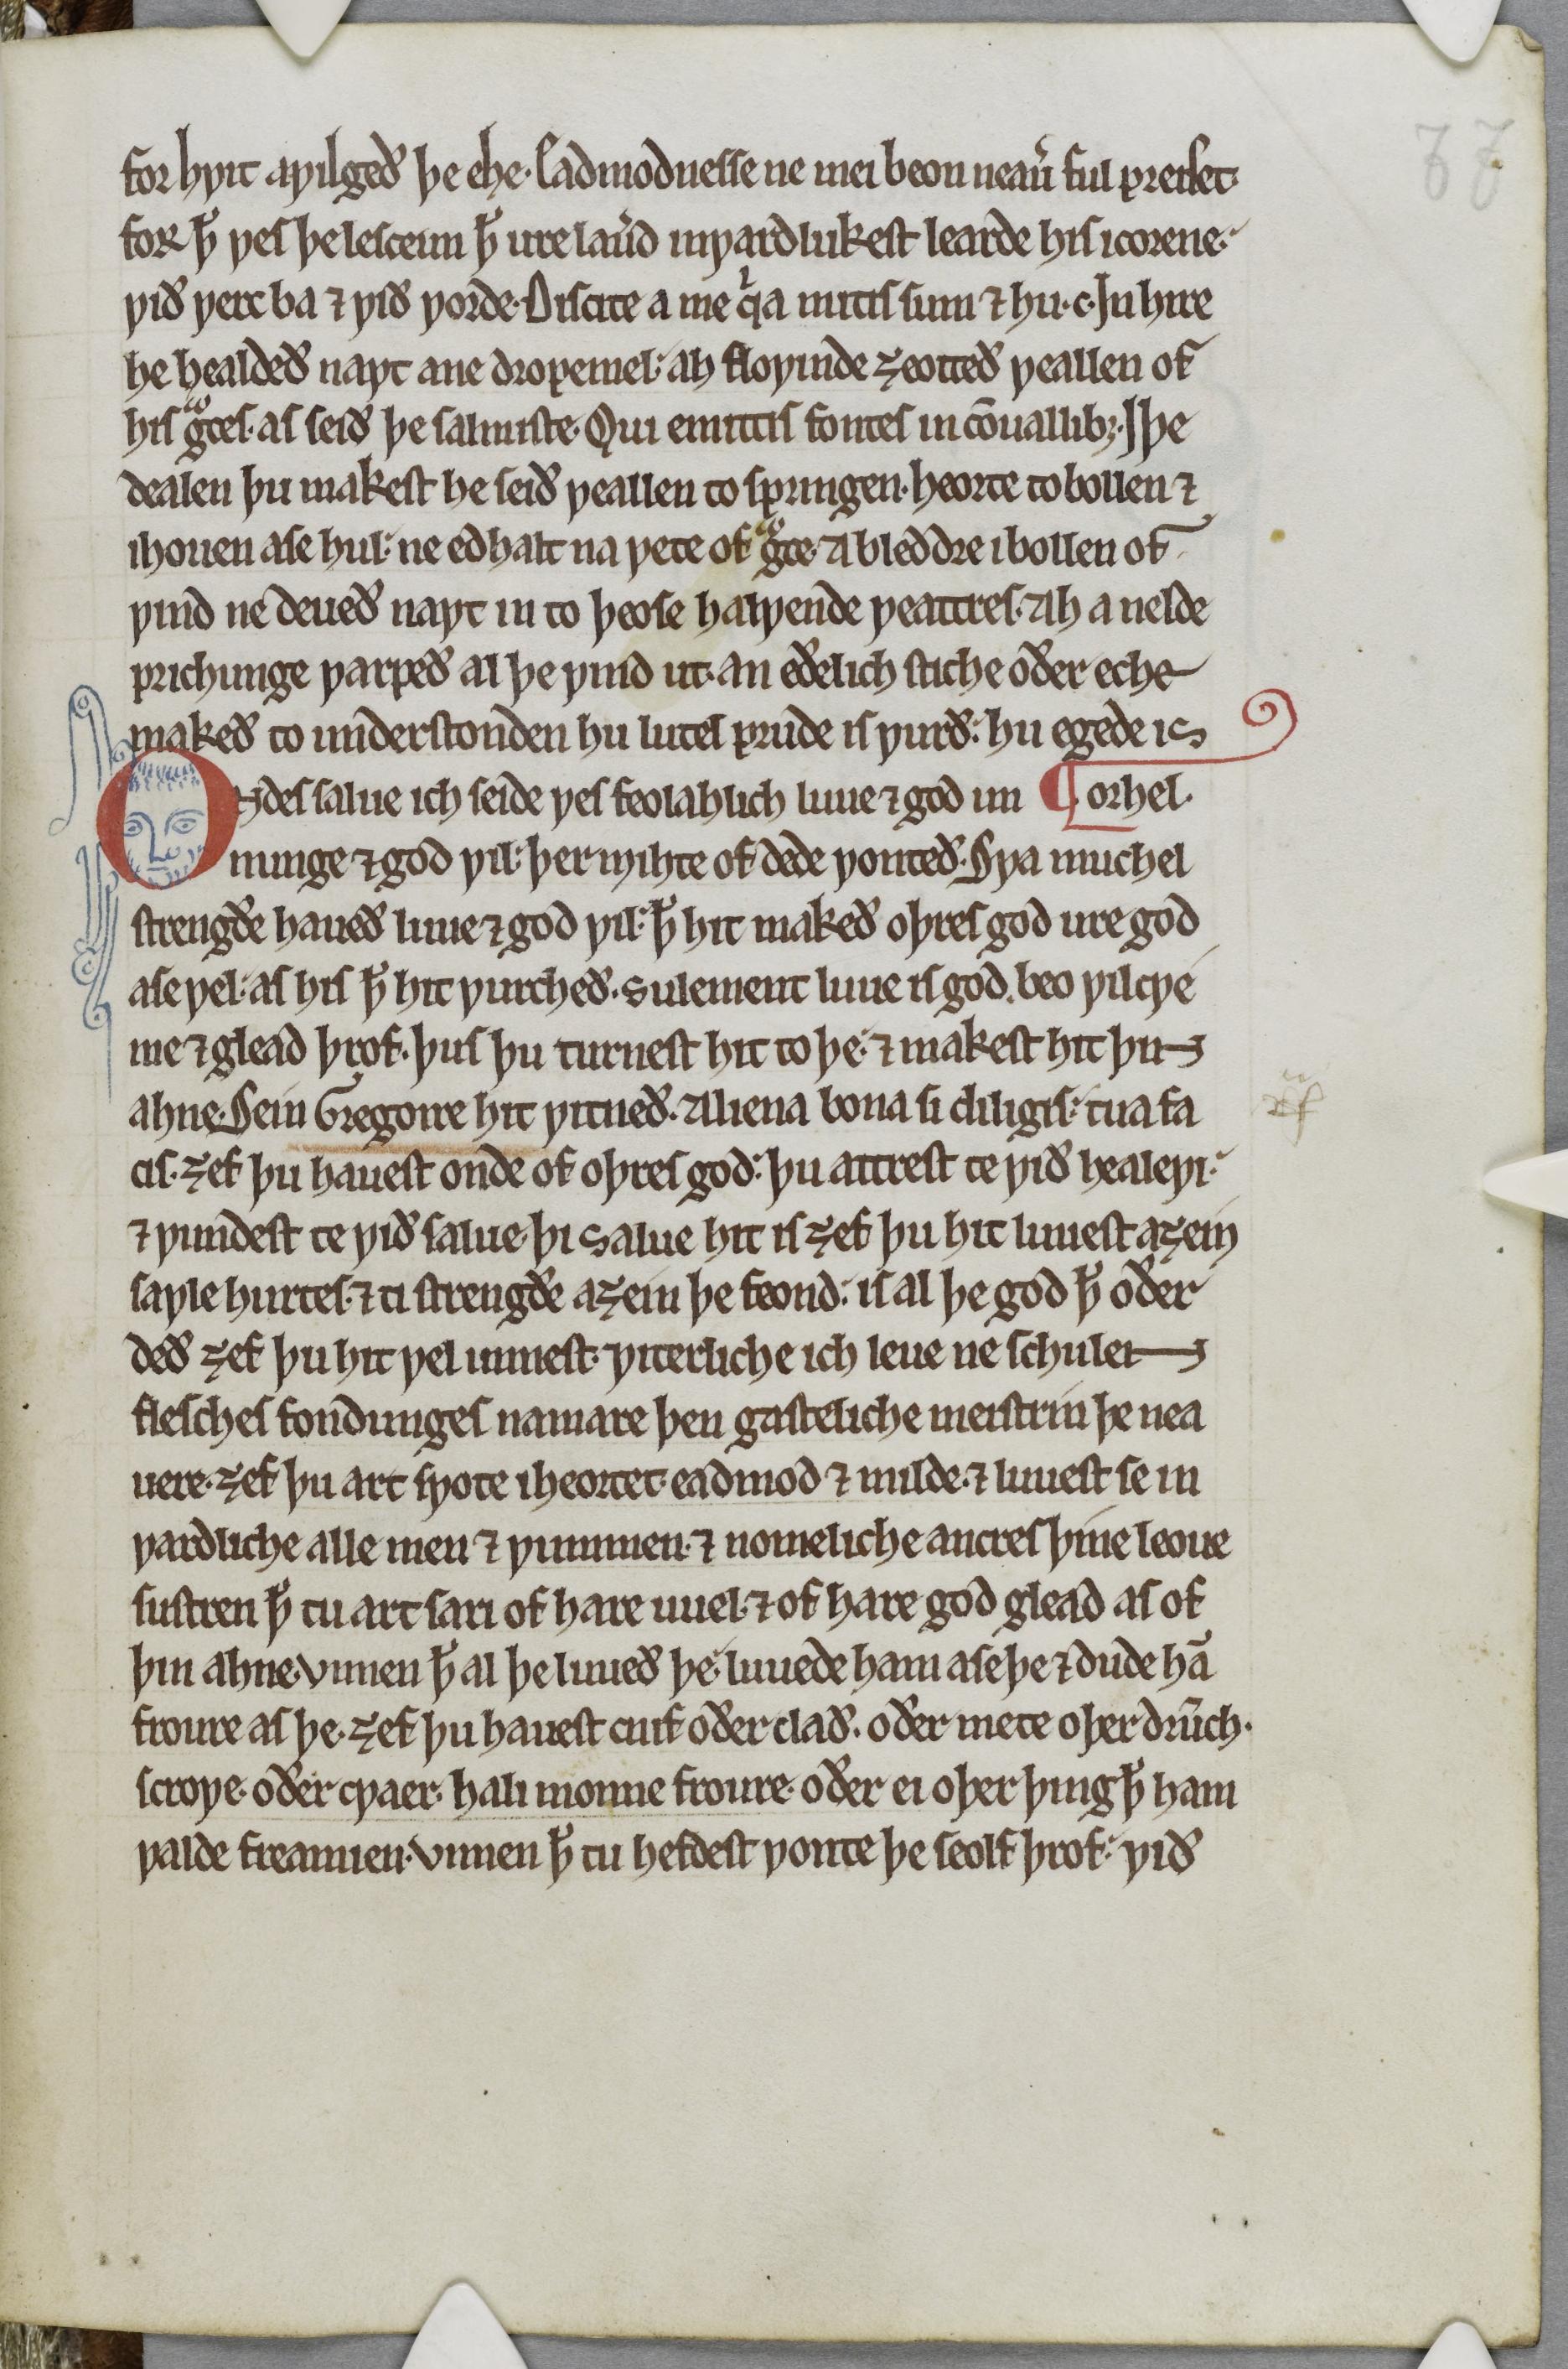 77
for hƿit aƿilgeð þe ehe. Eadmodnesse ne mei beon neau͛ ful preiset.
for ꝥ ƿes þe lesceun ꝥ ure lau͛d inƿardlukest learde his icorene.
ƿið ƿerc ba ⁊ ƿið ƿorde. Discite a me q͛a mitis sum ⁊ hu. c. In hire
he healdeð naƿt ane dropemel. ah floƿinde ȝeotteð ƿeallen of
his gͣces. as seið þe salmiste. Qui emittis fontes in cōuallibꝫ. I þe
dealen þu makest he seið ƿeallen to springen. heorte tobollen ⁊
ihouen ase hul. ne edhalt na ƿete of gͣce. A bleddre ibollen of
ƿind ne deueð naƿt in to þeose halƿende ƿeattres. Ah a nelde
prichunge ƿarpeð al þe ƿind ut. an eðelich stiche oðer eche
makeð to understonden hu lutel prude is ƿurð. hu egede is
Ondes salue ich seide ƿes feolahlich luue ⁊ god un ¶ orhel.
nunge ⁊ god ƿil. þer mihte of dede ƿonteð. Sƿa muchel
strengðe haueð luue ⁊ god ƿil. ꝥ hit makeð oþres god ure god
ase ƿel. as his ꝥ hit ƿurcheð. Sulement luue is god. beo ƿilcƿe
me ⁊ glead þrof. þus þu turnest hit to þe. ⁊ makest hit þin
ahne. Sein Gregoire hit ƿitneð. Aliena bona si diligis. tua fa
cis. ȝef þu hauest onde of oþres god. þu attrest te ƿið healeƿi.
⁊ ƿundest te ƿið salue. þi salue hit is ȝef þu hit luuest aȝein
saƿle hurtes. ⁊ ti strengðe aȝein þe feond. is al þe god ꝥ oðer
deð ȝef þu hit ƿel unnest. ƿiterliche ich leue ne schulen
flesches fondunges namare þen gasteliche meistrin þe nea
uere. ȝef þu art sƿote iheortet. eadmod ⁊ milde. ⁊ luuest se in
ƿardliche alle men ⁊ ƿummen. ⁊ nomeliche ancres þine leoue
sustren ꝥ tu art sari of hare uuel. ⁊ of hare god glead as of
þin ahne. vnnen ꝥ al þe luueð þe. luuede ham ase þe ⁊ dude hā
froure as þe. ȝef þu hauest cnif oðer clað. oðer mete oþer drūch.
scroƿe. oðer cƿaer. hali monne froure. oðer ei oþer þing ꝥ ham
ƿalde freamien. vnnen ꝥ tu hefdest ƿonte þe seolf þrof. ƿið